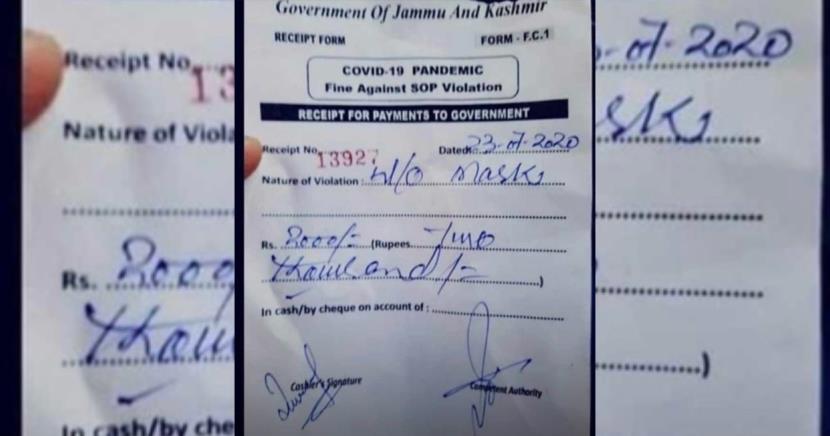 Government Of Jammu And Kashmir
RECEIPT FORM FORM - F.C.1
COVID-19 PANDEMIC
Fine Against SOP Violation
RECEIPT FOR PAYMENTS TO GOVERNMENT
Receipt No. 13927 Dated: 23-07-2020
Nature of Violation : W/o Mask
Rs. 2000/- (Rupees Two
thousand/- )
In cash/by cheque on account of :
Cashier's Signature Competent Authority
Receipt No.
13
Nature of Viola
Rs. 2000
thou
In cash/by che
-07-2020
ask
)